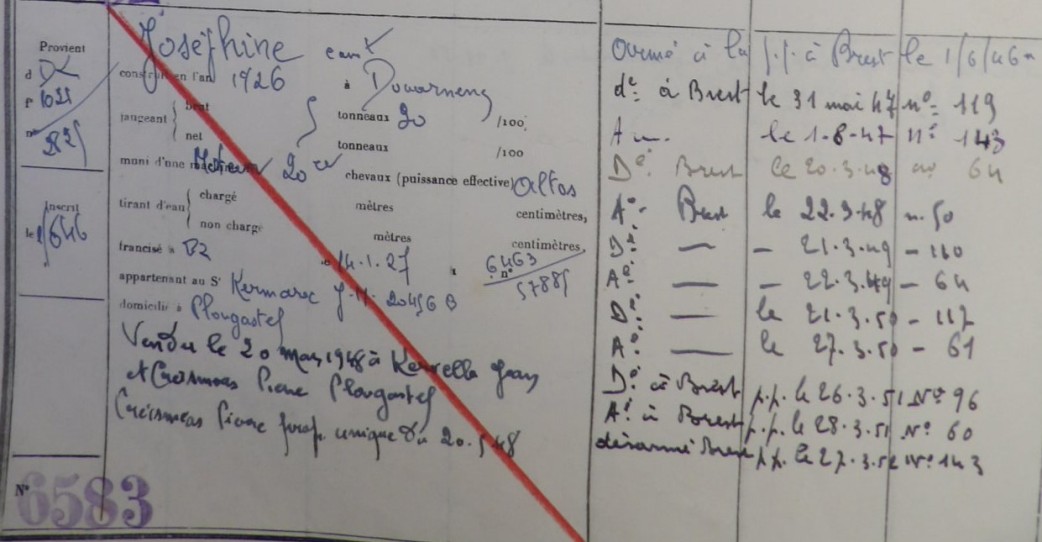 Provient
d
f° 1021
n° 282
Inscrit
le 1646
N° 6583
Joséphine
construit en l'an 1926 à Douarnenez
jaugeant brut tonneaux 20 /100
net tonneaux /100
muni d'une Moteur 20 cv chevaux (puissance effective)
tirant d'eau chargé mètres centimètres,
non charge mètres centimètres,
francisé à B2 le 14.1.27 n° 6463
5788
appartenant au Sr Kermarec J. M. 20456 B
domicilié à Plougastel
Vendu le 20 mars 1948 à Kervella Jean
et Croismeas Pierre Plougastel
Croismeas Pierre prop. unique 20.5.48
Armé à la p.p. à Brest le 1/6/46
de à Brest le 31 mai 47 n° 119
A le 1-8-47 n° 143
D° Brest le 20.3.48 no 64
A° Brest le 22.3.48 n. 50
D° — — 21.3.49 — 110
A° — — 22.3.49 — 64
D° — le 21.3.50 — 117
A° — le 27.3.50 — 61
D° à Brest p.p. le 26.3.51 N° 96
A° à Brest p.p. le 28.3.51 N° 60
désarmé Brest p.p. le 27.3.52 N° 143